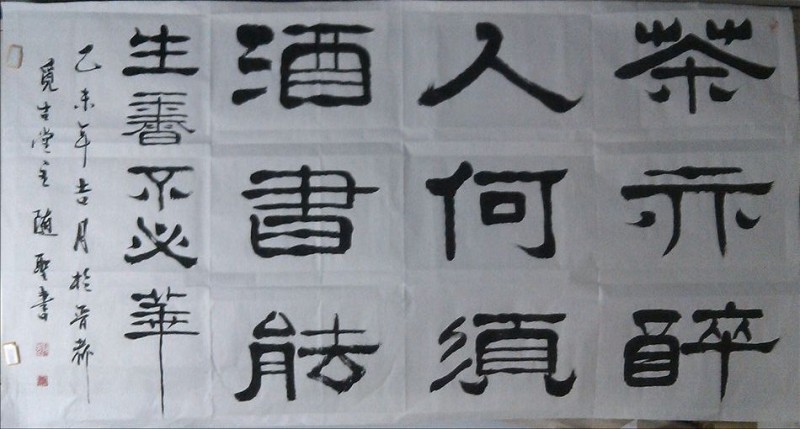 茶亦醉
人何須
酒書能
生香不必華
乙未年吉月於晋都
覓古堂主隨聖書